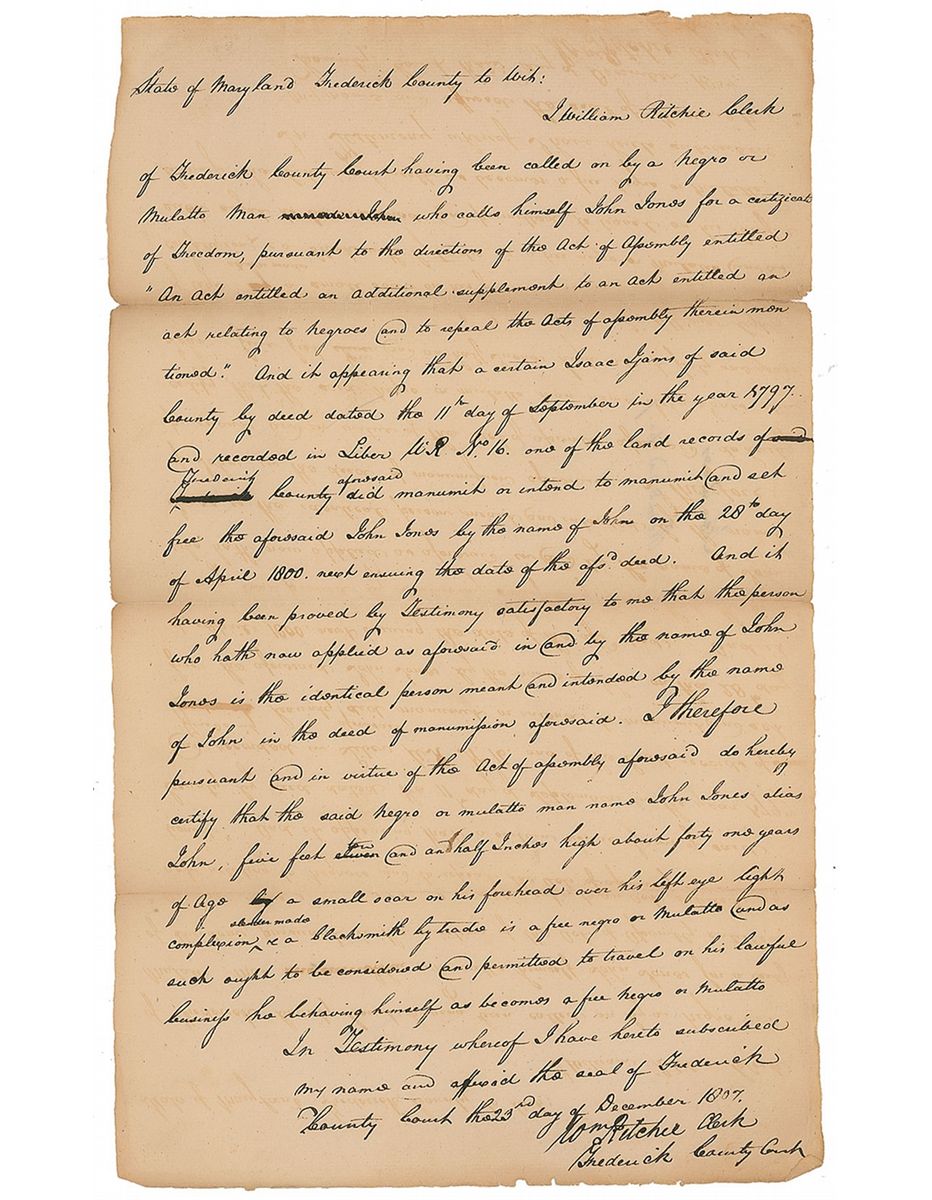 State of Maryland Frederick County to Wit:
I William Ritchie Clerk
of Frederick County Court having been called on by a Negro or
Mulatto Man who calls himself John Jones for a certificate
of Freedom, pursuant to the directions of the Act of Assembly entitled
"An Act entitled an additional supplement to an Act entitled an
act relating to Negroes and to repeal the Acts of assembly therein men
tioned." And it appearing that a certain Isaac Ijams of said
County by deed dated the 11th day of September in the year 1797.
and recorded in Liber W.R No 16. one of the land records of
Frederick County aforesaid did manumit or intend to manumit and set
free the aforesaid John Jones by the name of John on the 28th day
of April 1800. next ensuing the date of the afsd. deed. And it
having been proved by Testimony satisfactory to me that the person
who hath now applied as aforesaid in and by the name of John
Jones is the identical person meant and intended by the name
of John in the deed of manumission aforesaid. I therefore
pursuant and in virtue of the Act of assembly aforesaid do hereby
certify that the said negro or mulatto man name John Jones alias
John, five feet ten and an half Inches high about forty one years
of Age a small scar on his forehead over his left eye light
complexion slender made & a blacksmith by trade is a free negro or Mulatto and as
such ought to be considered and permitted to travel on his lawful
business he behaving himself as becomes a free Negro or Mulatto
In Testimony whereof I have hereto subscribed
my name and affixed the seal of Frederick
County Court the 23rd day of December 1807.
Wm Ritchie Clerk
Frederick County Court